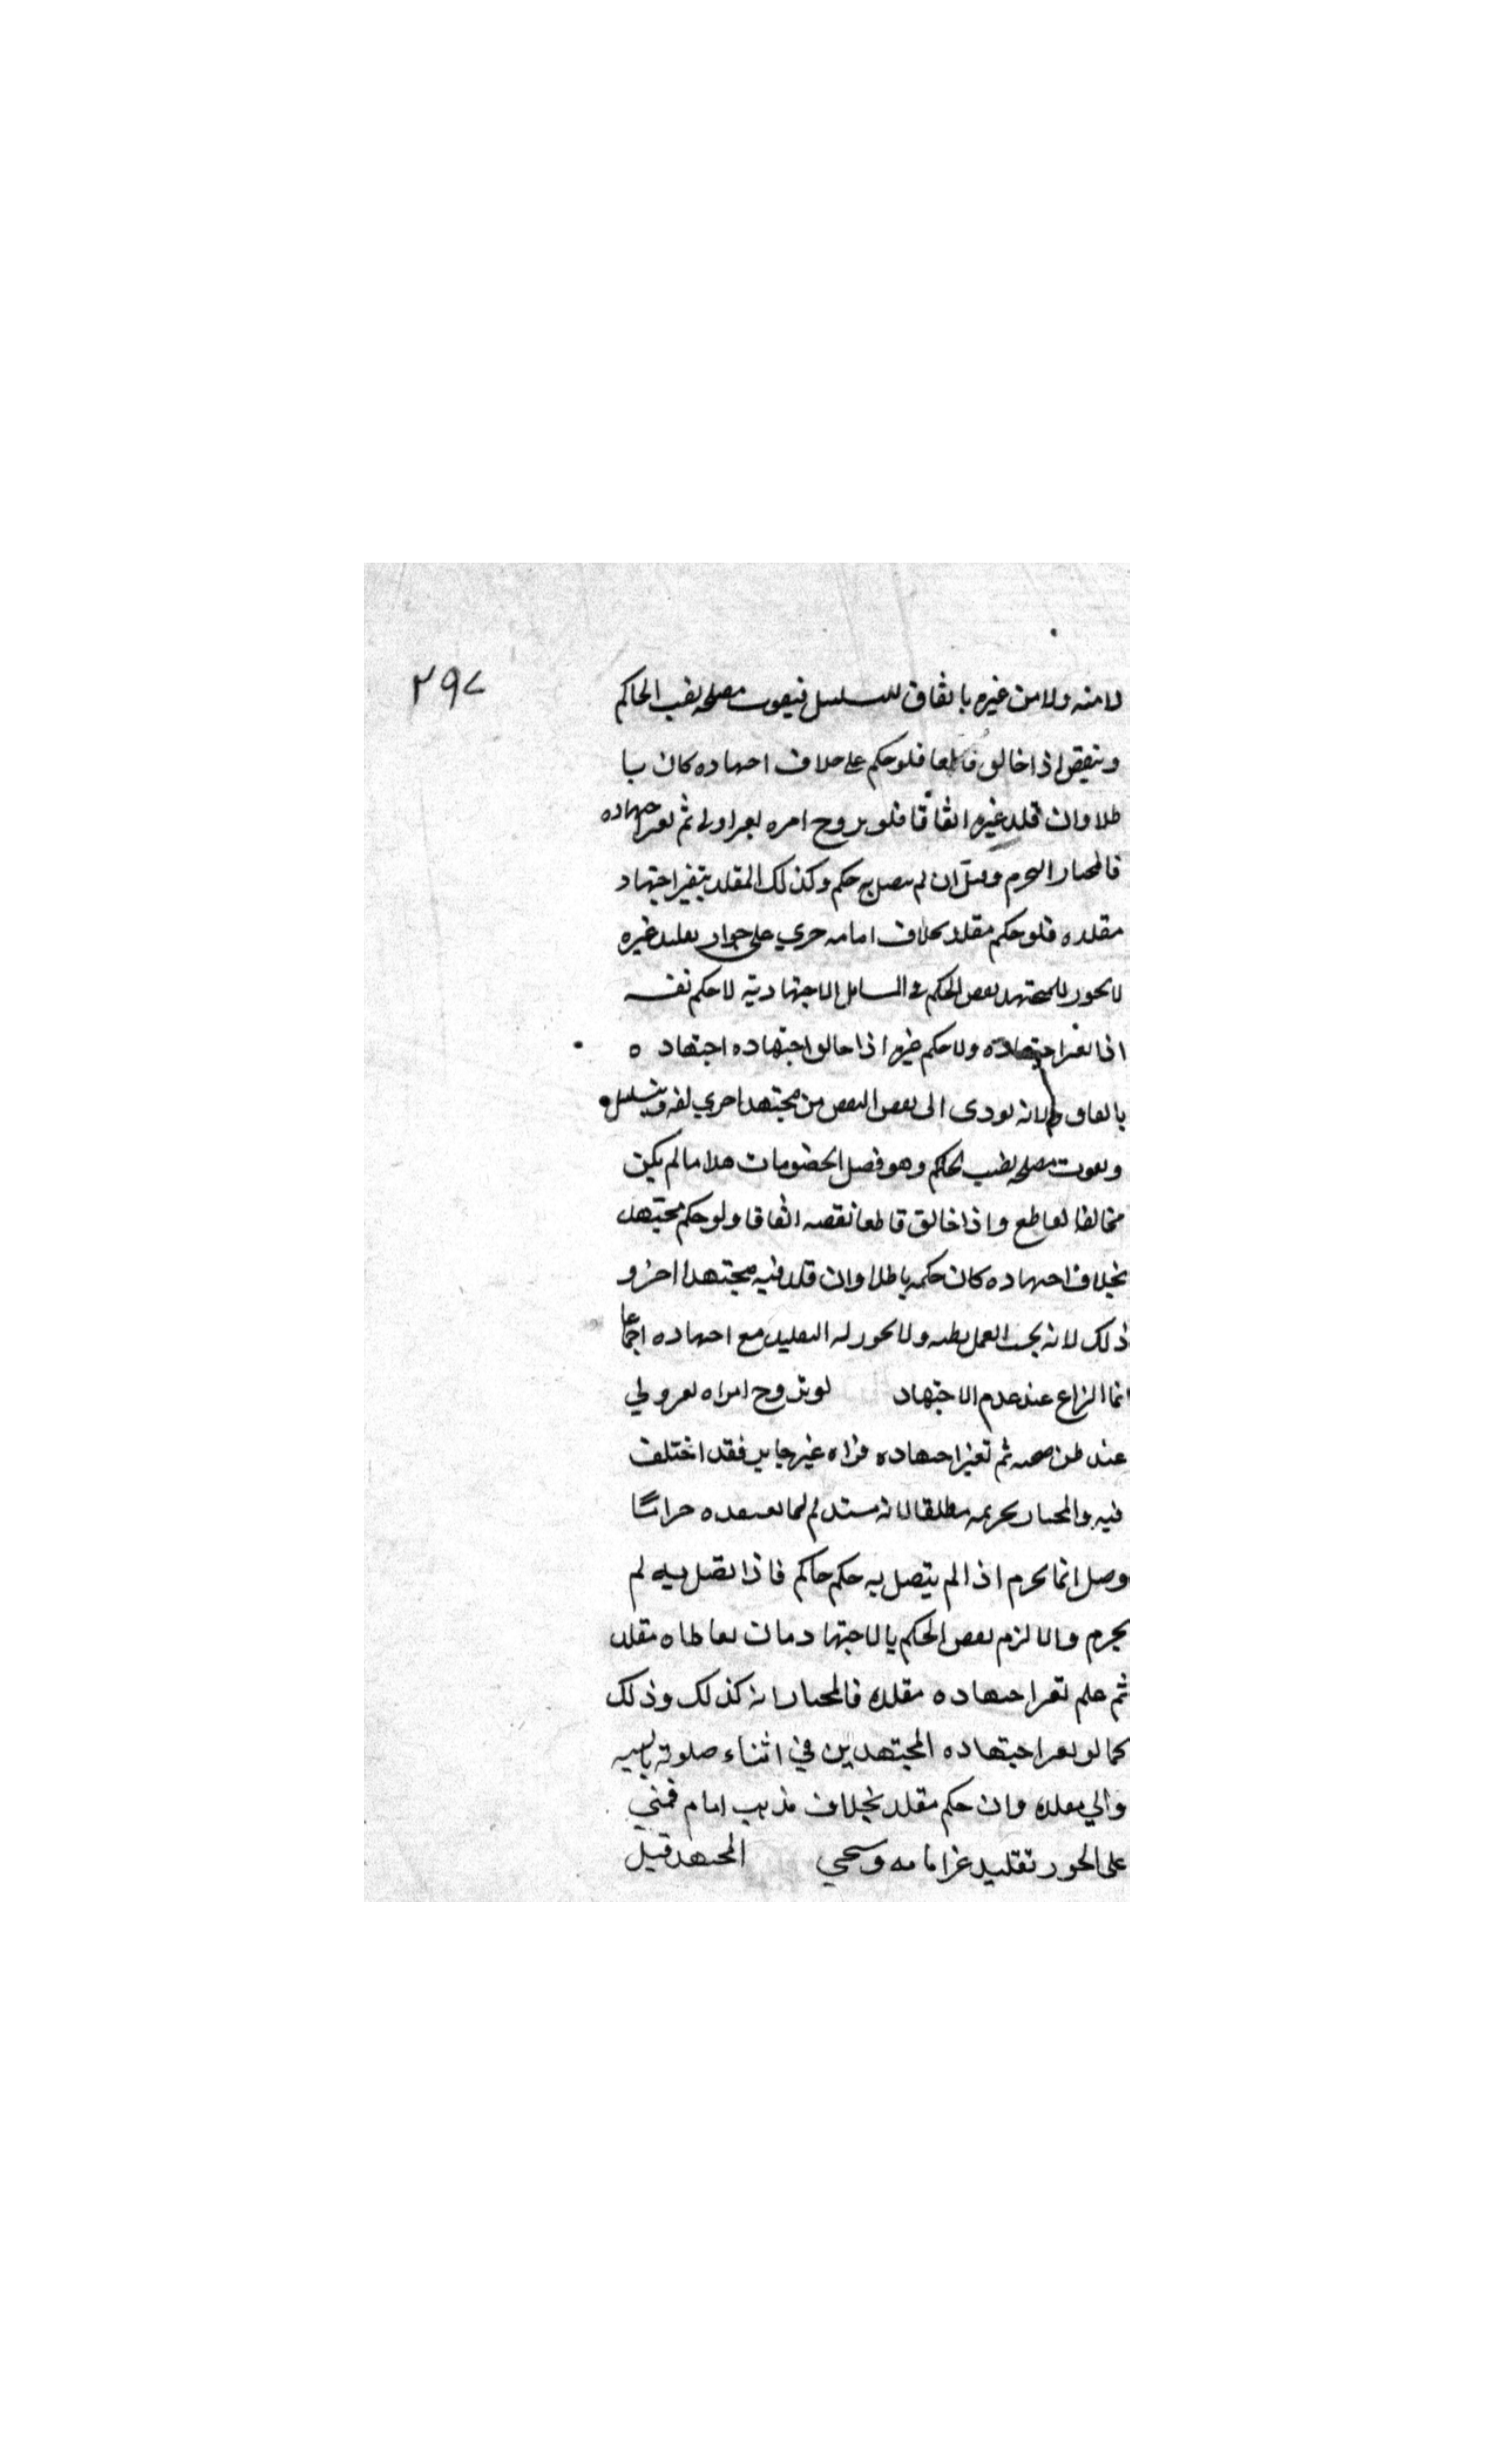 ٢٩٧
لا منه ولا من غيره باتفاق للتسلسل فيفوت مصلحة نصب الحاكم
وينقض اذا خالف قاطعا فلو حكم على خلاف اجتهاده كان با
طلا وان قلد غيره اتفاقا فلو تزوج امرة بغير ولي ثم تغير اجتهاده
فالمختار التحريم وقيل ان لم يتصل به حكم وكذلك المقلد يتغير اجتهاد
مقلده فلو حكم مقلد بخلاف امامه جري على جواز تقليد غيره
لا يجوز للمجتهد نقض الحكم في المسايل الاجتهادية لا حكم نفسه
اذا تغير اجتهاده ولا حكم غيره اذا خالف اجتهاده اجتهاد ه
بالاتفاق لانه يودى الى نقض النقض من مجتهد اخري لغيره ويتسلسل
ويفوت مصلحة نصب الحاكم وهو فصل الخصومات هذا ما لم يكن
مخالفا لقاطع واذا خالف قاطعا نقضه اتفاقا ولو حكم مجتهد
بخلاف اجتهاده كان حكمه باطلا وان قلد فيه مجتهدا اخر و
ذلك لانه يجب العمل بظنه ولا يجوز له التقليد مع اجتهاده اجماعا
انما النزاع عند عدم الاجتهاد لو تزوج امراه بغير ولي
عند ظن صحته ثم تغير اجتهاده فراه غير جايز فقد اختلف
فيه والمختار تحريمه مطلقا لانه مستديم لما يعتقده حراما
وقيل انما يحرم اذا لم يتصل به حكم حاكم فاذا اتصل به لم
يحرم والا لزم نقض الحكم بالاجتهاد فان تعاطاه مقلد
ثم علم تغير اجتهاده مقلده فالمختار انه كذلك وذلك
كما لو تغير اجتهاده المجتهدين في اثناء صلوته
والي مقلده وان حكم مقلد بخلاف مذهب امام فمبني
على الجوز تقليد غير امامه وسيجي المجتهد قبل